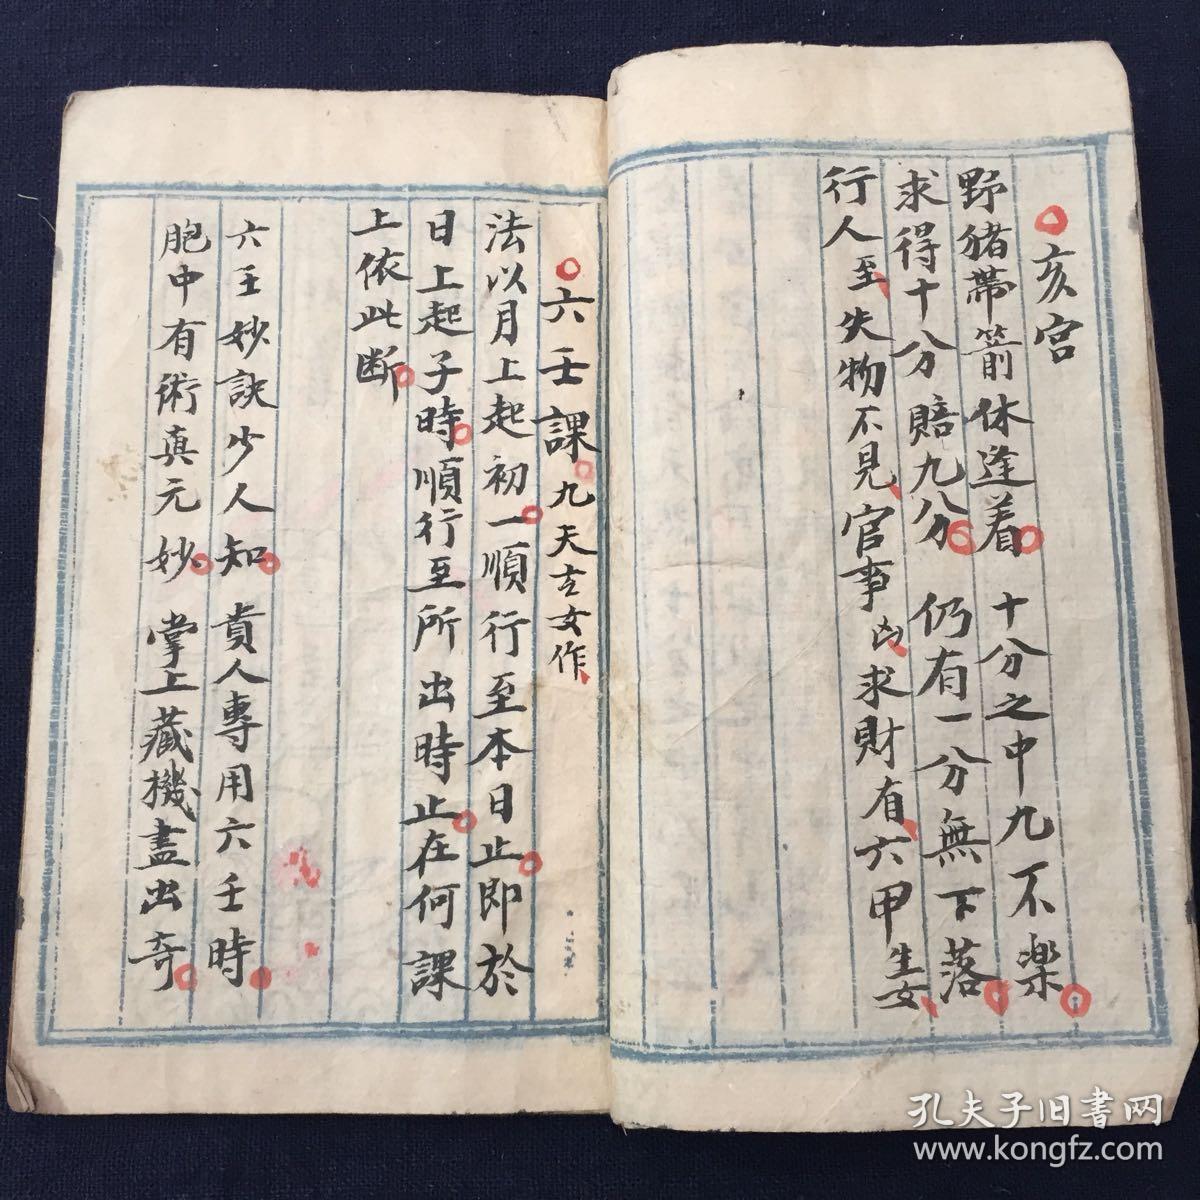 亥宫
野猪帶箭休逢着 十分之中九不楽
求得十分賠九分 仍有一分無下落
行人至失物不見官事凶求財有六甲生女
六壬課九天玄女作
法以月上起初一順行至本日止即於
日上起子時順行至所出時止在何課
上依此断
六壬妙訣少人知 貴人專用六壬時
胞中有術真元妙 掌上藏機盡出奇
孔夫子旧書网
www.kongfz.com